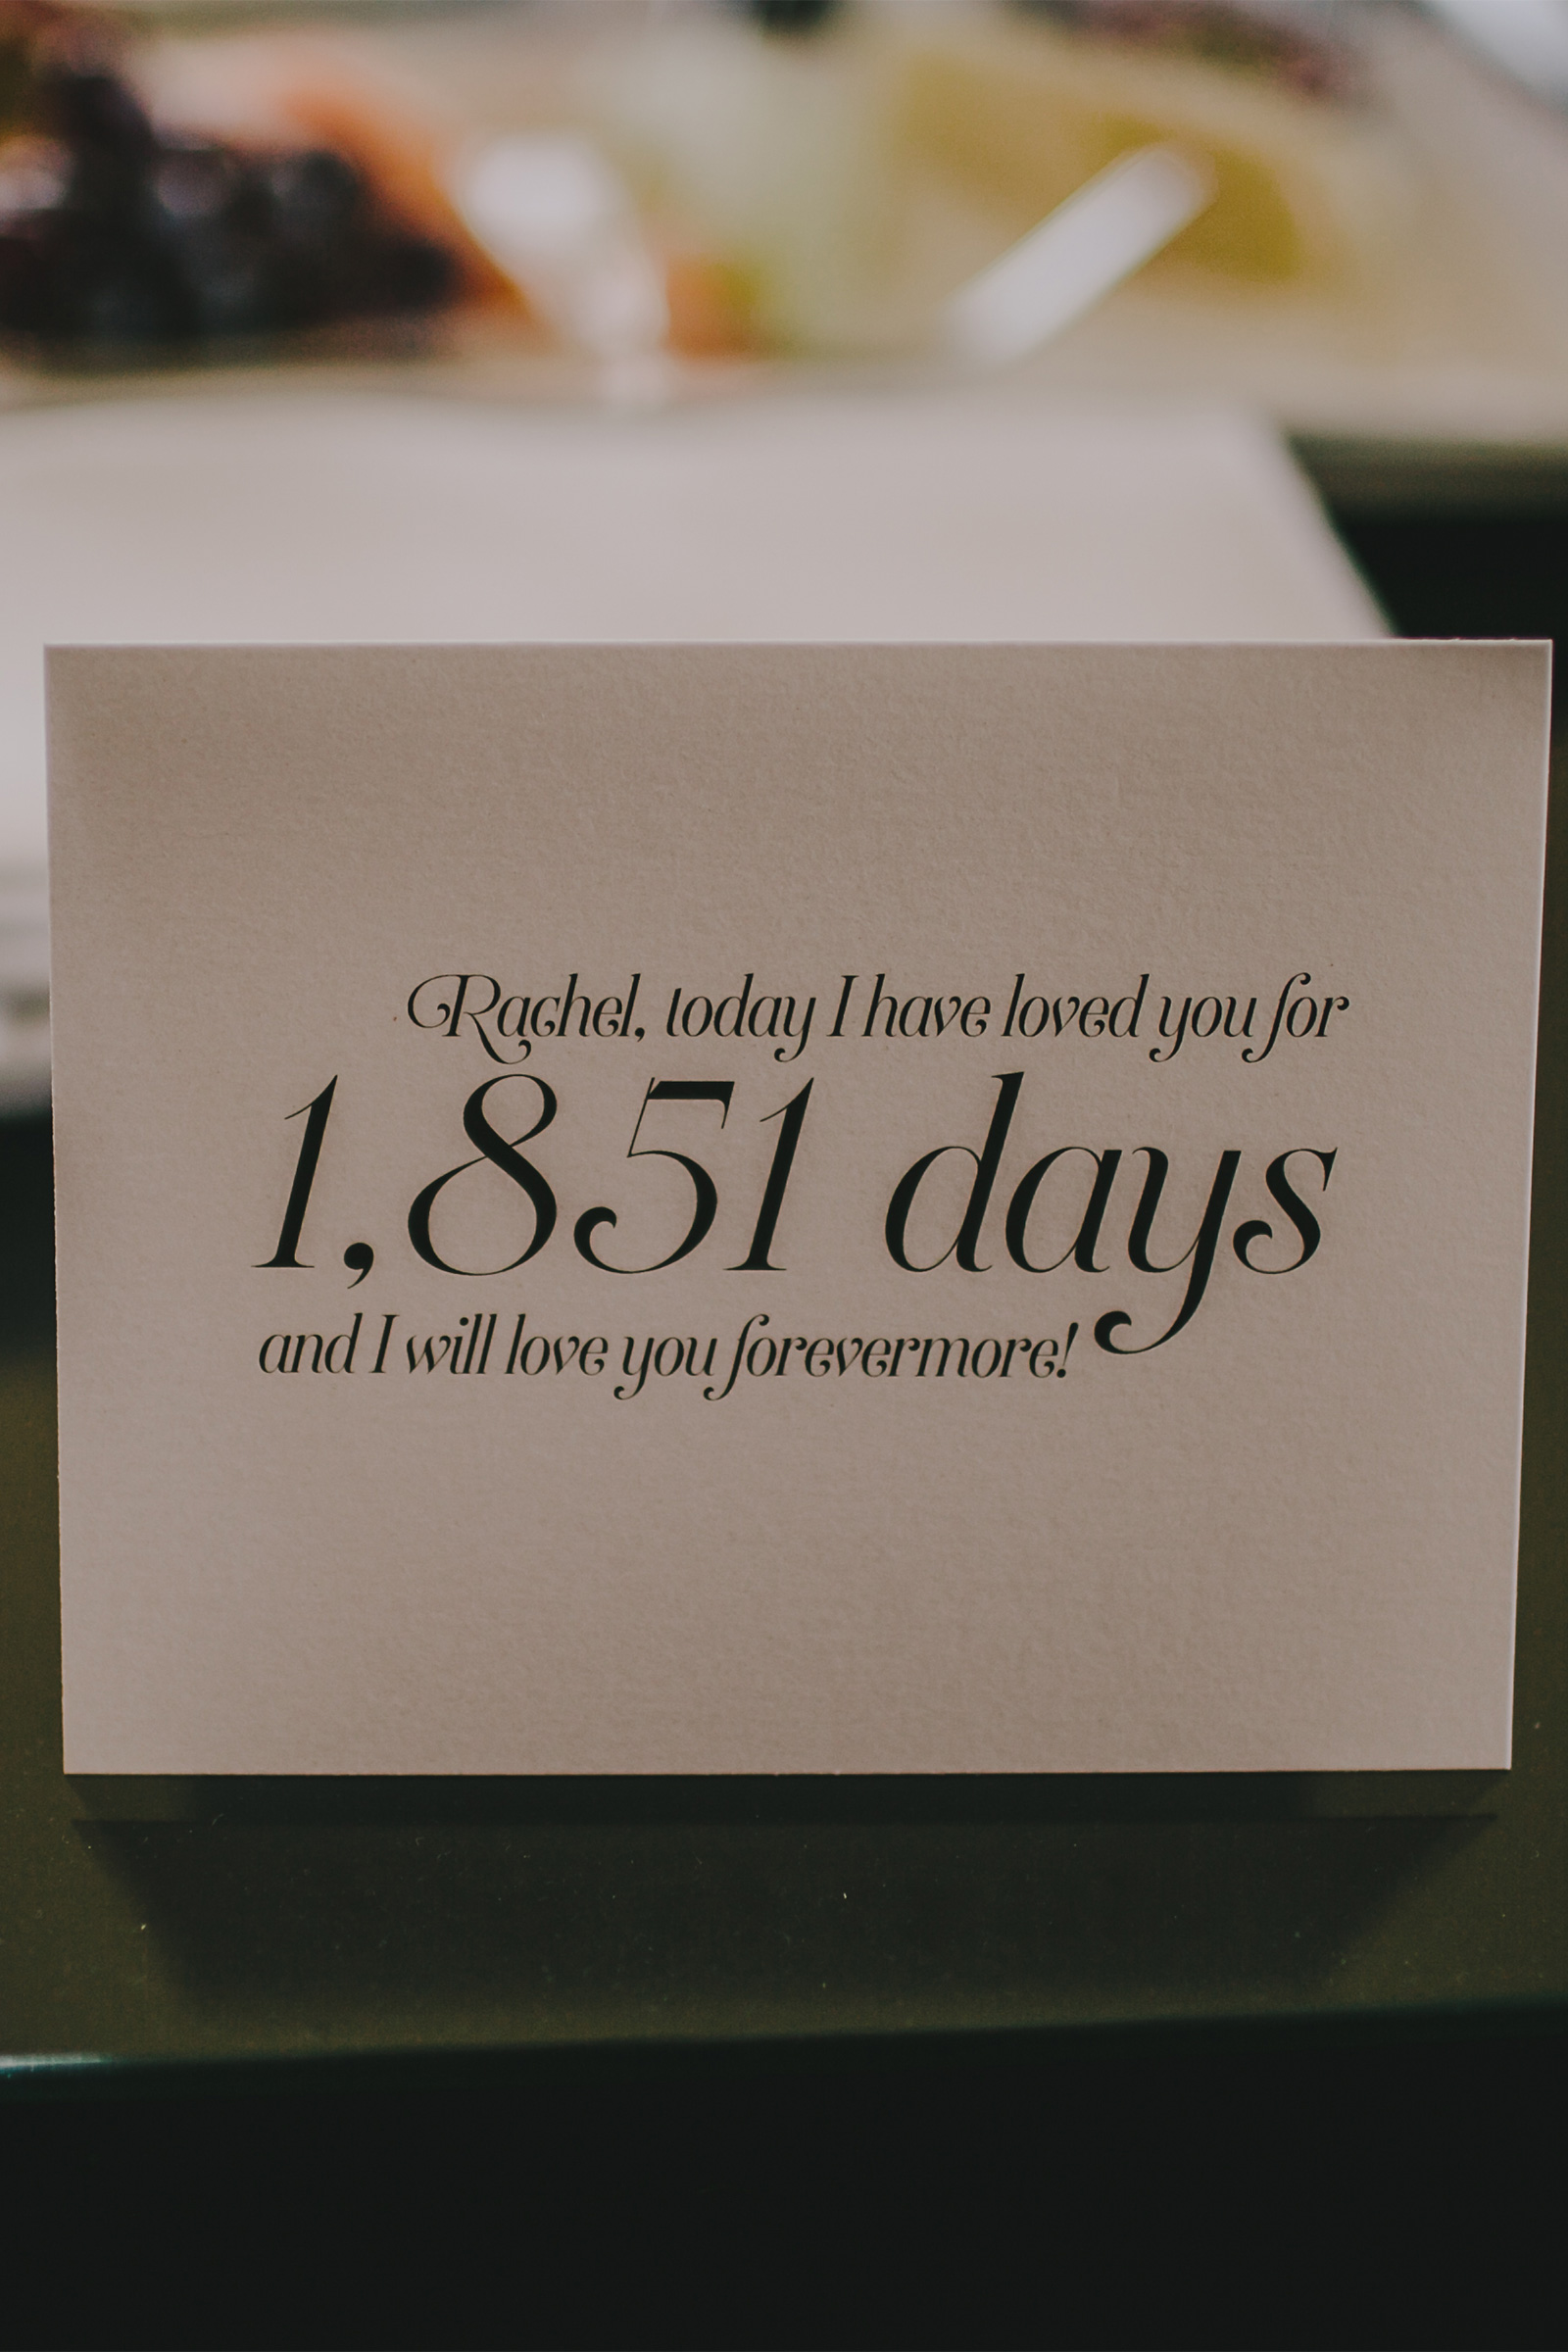 Rachel, today I have loved you for
1,851 days
and I will love you forevermore!